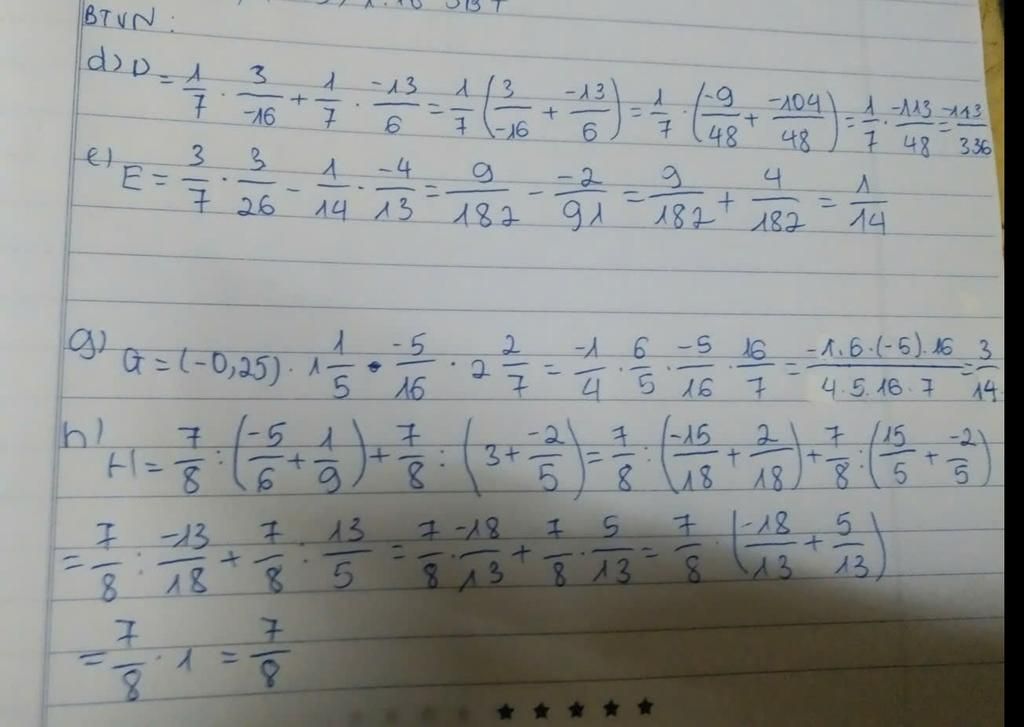 BTVN:
d) D = 1/7 . 3/-16 + 1/7 . -13/6 = 1/7 (3/-16 + -13/6) = 1/7 . (-9/48 + -104/48) = 1/7 . -113/48 = -113/336
e) E = 3/7 . 3/26 - 1/14 . -4/13 = 9/182 - -2/91 = 9/182 + 4/182 = 1/14
g) G = (-0,25) . 1 1/5 . -5/16 . 2 2/7 = -1/4 . 6/5 . -5/16 . 16/7 = -1.6.(-5).16/4.5.16.7 = 3/14
h) H = 7/8 : (-5/6 + 1/9) + 7/8 : (3 + -2/5) = 7/8 : (-15/18 + 2/18) + 7/8 : (15/5 + -2/5)
= 7/8 : -13/18 + 7/8 : 13/5 = 7/8 . -18/13 + 7/8 . 5/13 = 7/8 . (-18/13 + 5/13)
= 7/8 . 1 = 7/8